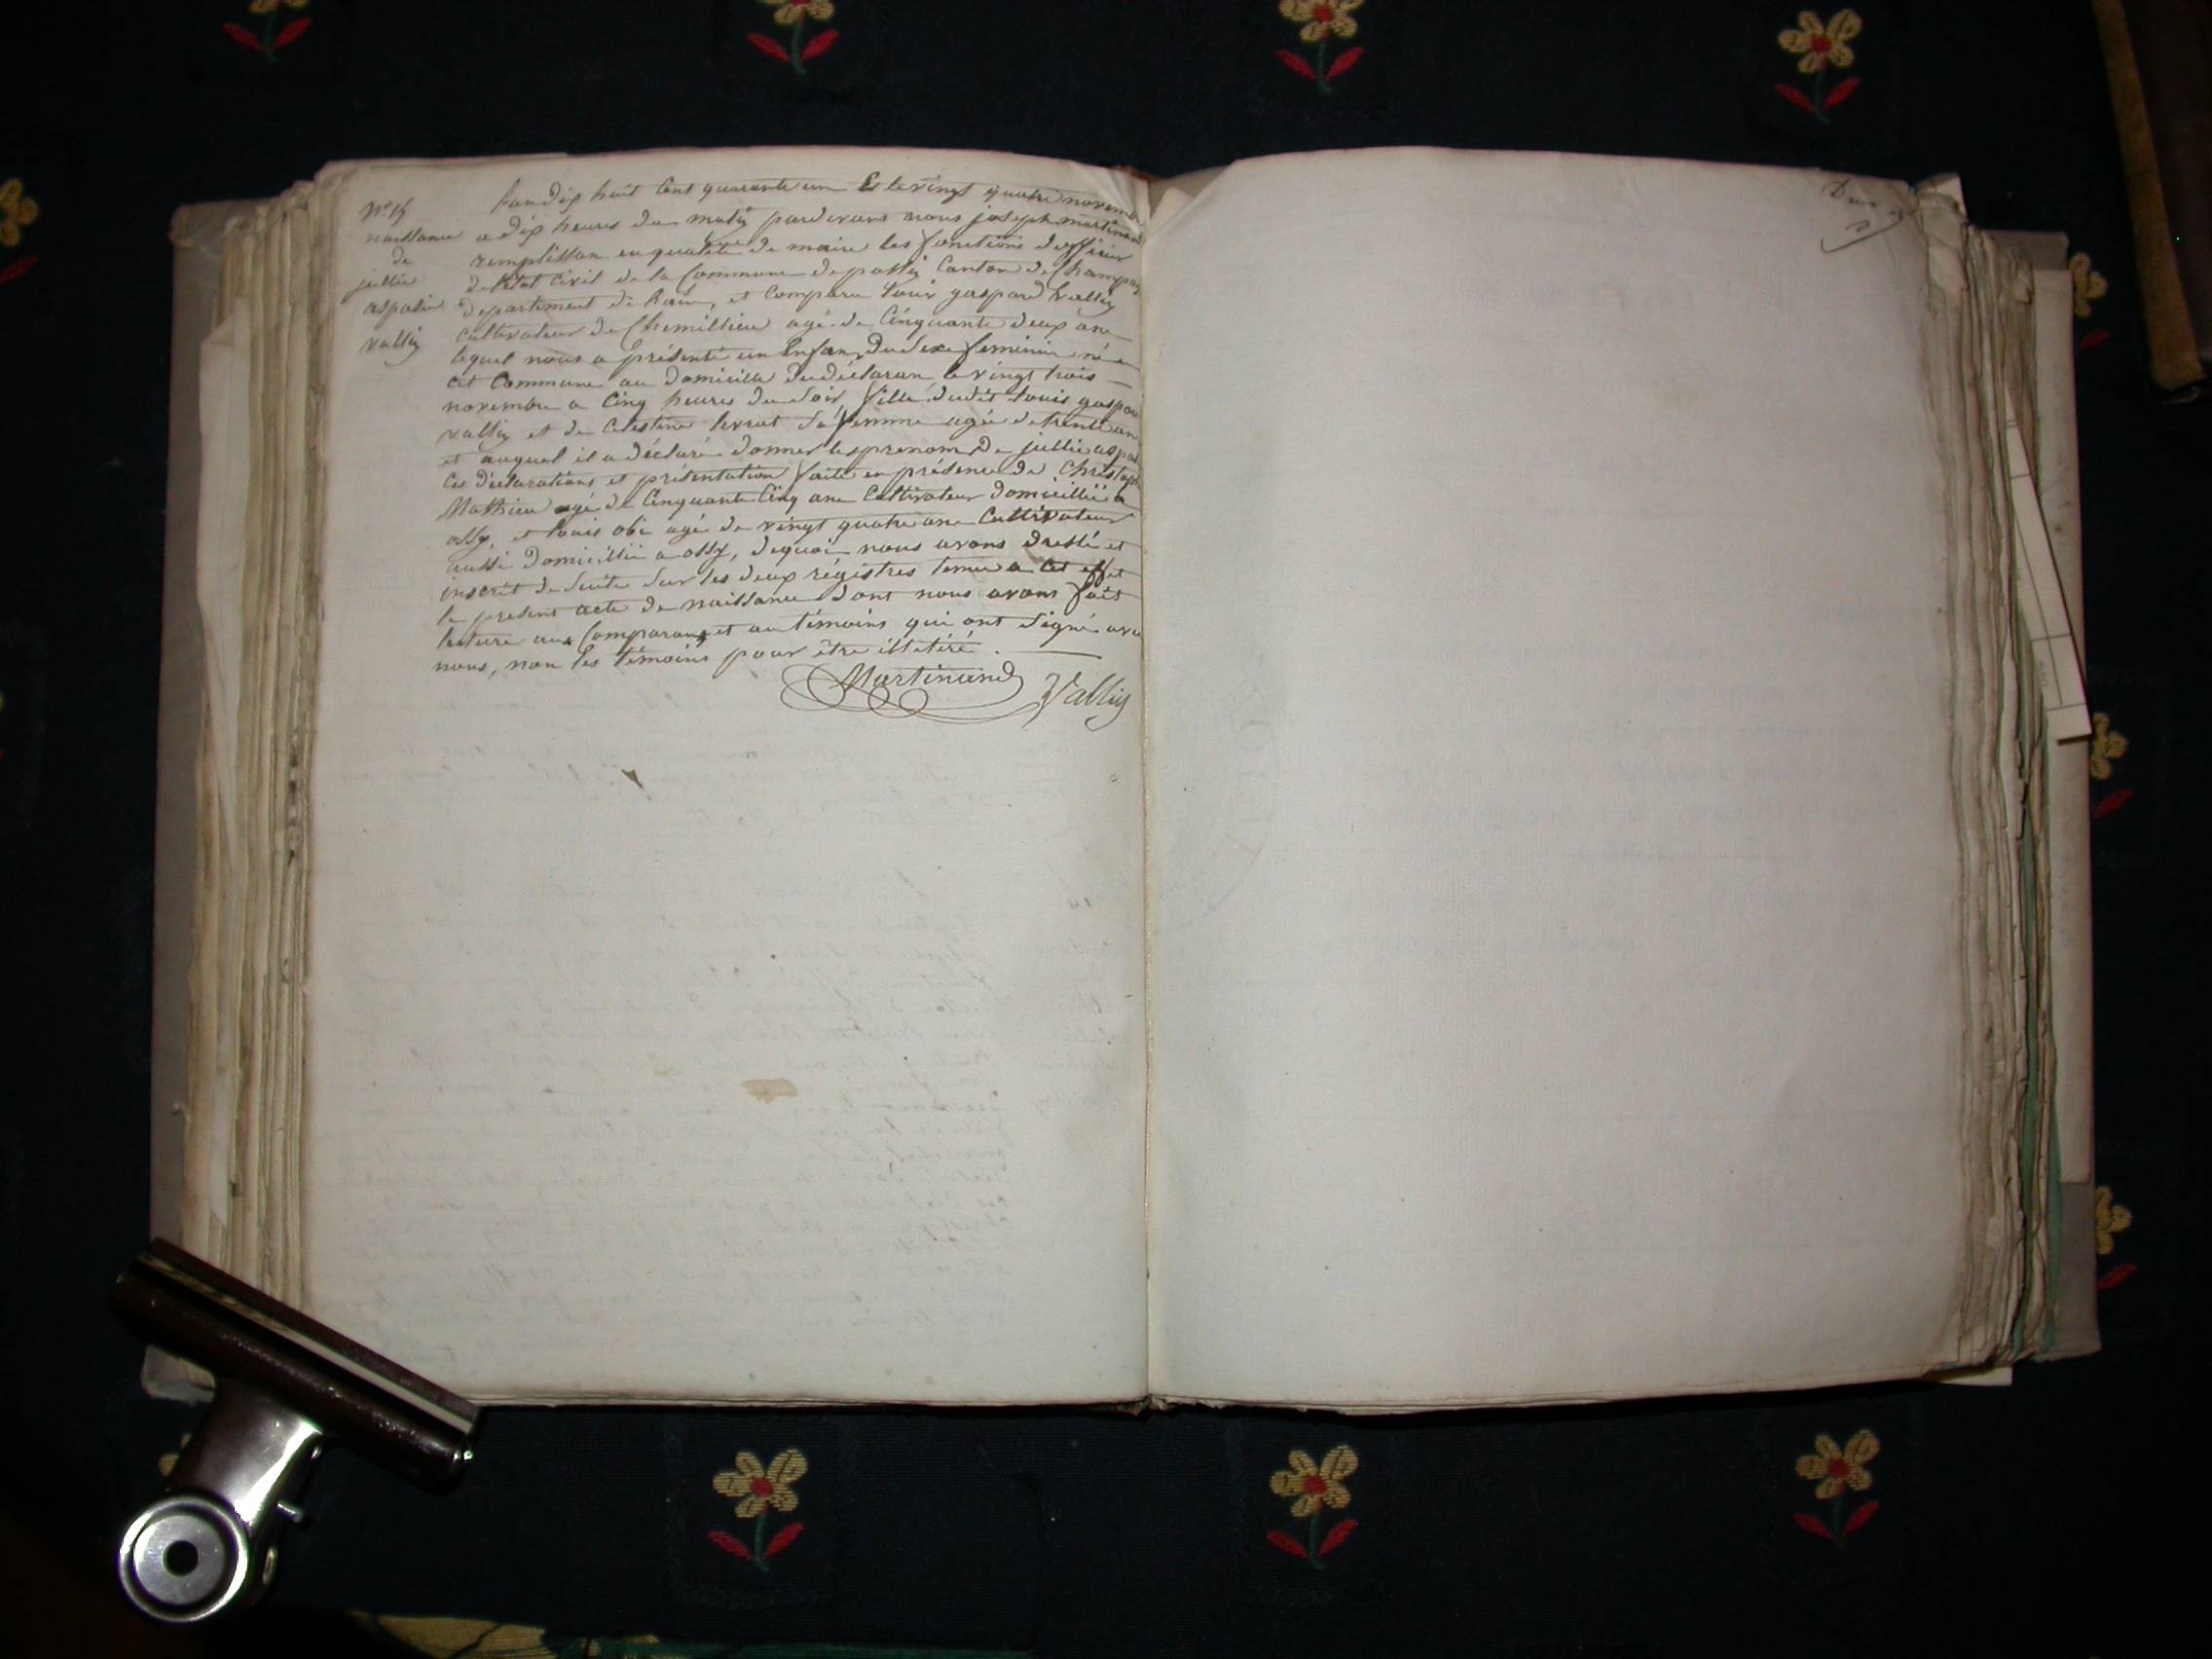 N° 15
naissance
de
jullie
aspasie
vallin
Lan dix huit cent quarante un Et le vingt quatre novem
a dix heures du matin pardevant nous joseph martinand
remplissan en qualité de maire les fonctions d'officier
de l'état civil de la Commune de possy Canton de Champag
departement de Lain, et Comparu Louis gaspard Vallin
cultivateur de Chemillieu agé de Cinquante deux ans
lequel nous a présenté un Enfan du sexe feminin né en
cet Commune au Domicille du déclaran le vingt trois
novembre a Cinq heures du soir, fille dudit Louis gaspar
vallin et de Celestine levrat sa femme agée de trente an
et auquel il a déclaré donner les prenom De jullie aspas
Ces déclarations et présentation faite en présence de Christoph
Mathieu agé de Cinquante Cinq ans Cultivateur Domicillié a
ossy, et Louis obi agé de vingt quatre ans Cultivateur
aussi Domicillié a ossy, dequoi nous avons dressé et
inscrit de suite sur les deux régistres tenu a cet effet
le present acte de naissance dont nous avons fait
lecture aux Comparant et au témoins qui ont signé avec
nous, non les témoins pour être illetéré.
Martinand Vallin